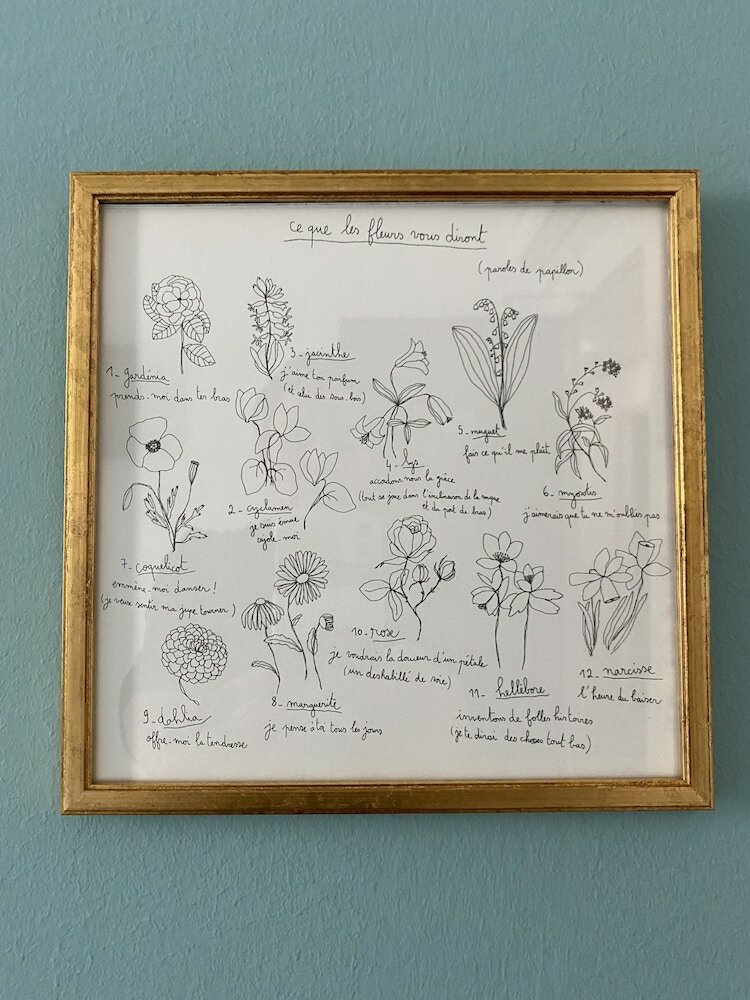 ce que les fleurs vous diront
(paroles de papillon)
1_ gardénia
prends-moi dans tes bras
2_ cyclamen
je suis émue
cajole-moi
3_ jacinthe
j'aime ton parfum
(et celui des sous-bois)
4_ lys
accordons nous la grâce
(tout se joue dans l'inclinaison de la nuque
et du port de bras)
5_ muguet
fais ce qu'il me plaît
6_ myosotis
j'aimerais que tu ne m'oublies pas
7_ coquelicot
emmène-moi danser !
(je veux sentir ma jupe tourner)
8_ marguerite
je pense à toi tous les jours
9_ dahlia
offre-moi la tendresse
10_ rose
je voudrais la douceur d'un pétale
(un deshabillé de soie)
11_ hellébore
inventons de folles histoires
(je te dirai des choses tout bas)
12_ narcisse
l'heure du baiser